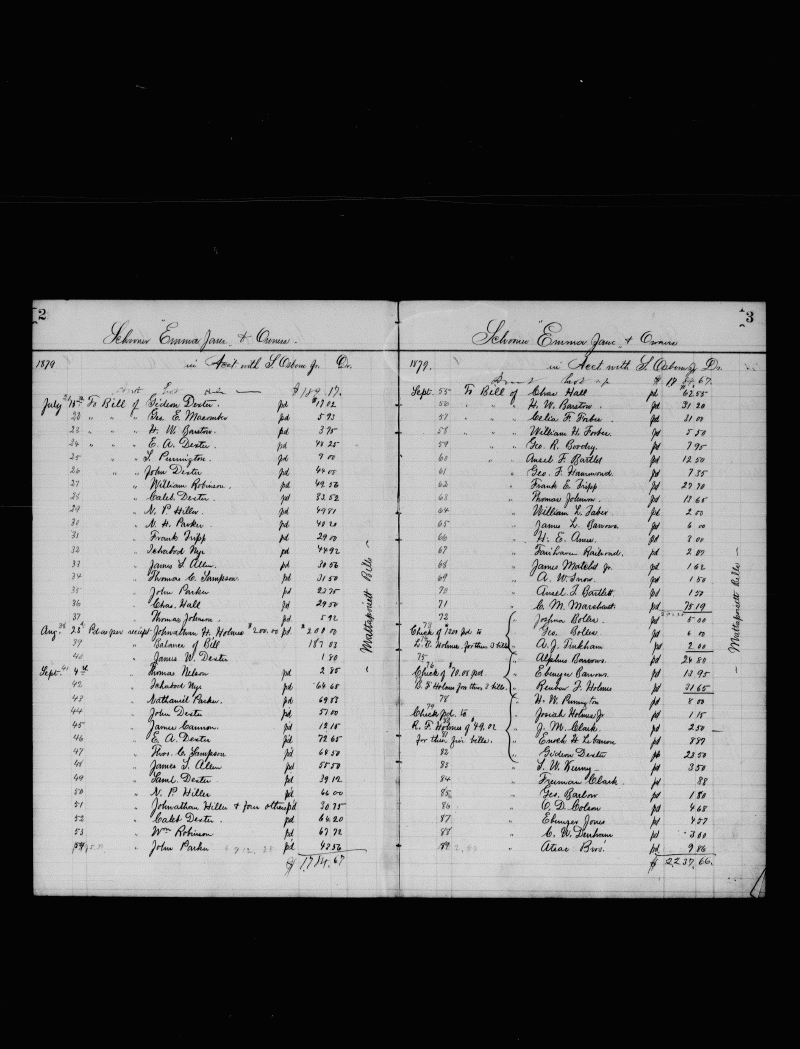 2
Schooner "Emma Jane" & Owners.
1879 in Acct with S. Osborn Jr. Dr.
$189.17.
July 21 15th To Bill of Gideon Dexter. pd $17 02
22 " " " Geo. E. Macomber pd 5 93
23 " " " H. W. Barstow. pd 3 75
24 " " " E. A. Dexter pd 48 25
25 " " " L. Pennington. pd 9 00
26 " " John Dexter pd 44 00
27 " William Robinson. pd 49 56
28 " Caleb Dexter pd 82 52
29 " N. P. Hiller. pd 49 81
30 " N. H. Parker. pd 48 20
31 " Frank Tripp pd 29 00
32 " Ichabod Nye pd 44 92
33 " James S. Allen. pd 30 56
34 " Thomas C. Sampson. pd 31 50
35 " John Parker pd 23 75
36 " Chas. Hall pd 29 50
37 " Thomas Johnson. pd 5 92
Aug. 38 23d Pd as per receipt Johnathan H. Holmes $200.00 pd. $200 00
39 " Balance of Bill 187 03
40 " James W. Dexter 1 80
Sept. 41 4th " Thomas Nelson pd 2 85
42 " Ichabod Nye pd 64 65
43 " Nathaniel Parker. pd 69 58
44 " John Dexter pd 51 00
45 " James Cannon. pd 12 15
46 " E. A. Dexter pd 72 65
47 " Thos. C. Sampson pd 68 50
48 " James S. Allen pd 55 50
49 " Saml. Dexter. pd 39 12
50 " N. P. Hiller pd 66 00
51 " Johnathan Hiller & four others pd 30 75
52 " Caleb Dexter. pd 64 20
53 " Wm Robinson pd 67 72
54 " John Parker pd 47 56
$1,784.67
Mattapoisett Bills
3
Schooner "Emma Jane" & Owners
1879. in Acct with S. Osborn Jr Dr.
Sept. 55 To Bill of Chas Hall pd 62 55
56 " " H. W. Barstow. pd 31 20
57 " " Celia F. Forbes pd 31 00
58 " " William H. Forbes pd 5 50
59 " " Geo. R. Bowdry. pd 7 95
60 " " Ansel F. Bartlet pd 12 50
61 " Geo. F. Hammond. pd 7 35
62 " Frank E. Tripp pd 27 70
63 " Thomas Johnson. pd 17 65
64 " William L. Faber pd 2 00
65 " James L. Barrows. pd 6 00
66 " H. E. Ames. pd 3 00
67 " Fairhaven Railroad. pd 2 87
68 " James Matchet Jr pd 1 62
69 " A. W. Snow. pd 1 50
70 " Ansel F. Bartlett pd 1 50
71 " C. M. Marchant. pd 75 19
72 " Joshua Bolles. pd 5 00
73 Check of $13.00 pd to " Geo. Bolles pd 6 00
74 L. C. Holmes for them 3 bills " A. J. Tinkham pd 2 00
75 " Alpheus Barrows. pd 24 80
76 Check of $70.05 pd " Ebenezer Barrows. pd 13 95
R. F. Holmes for them 3 bills. " Reuben F. Holmes pd 31 65
78 " H. W. Pennington pd 8 00
79 Check pd. to " Josiah Holmes Jr. pd 1 15
R. F. Holmes of $49.02 " J. M. Clark. pd 2 50
81 for their five bills. " Enoch H. Lebaron pd 8 87
82 " Gideon Dexter pd 23 50
83 " S. W. Kenny pd 3 50
84 " Freeman Clark. pd 88
85 " Geo. Barlow pd 1 80
86 " C. D. Colson pd 4 68
87 " Ebenezer Jones pd 4 57
88 " C. W. Denham pd 3 00
89 " Atsac Bros. pd 9 86
$2,237.66.
Mattapoisett bills